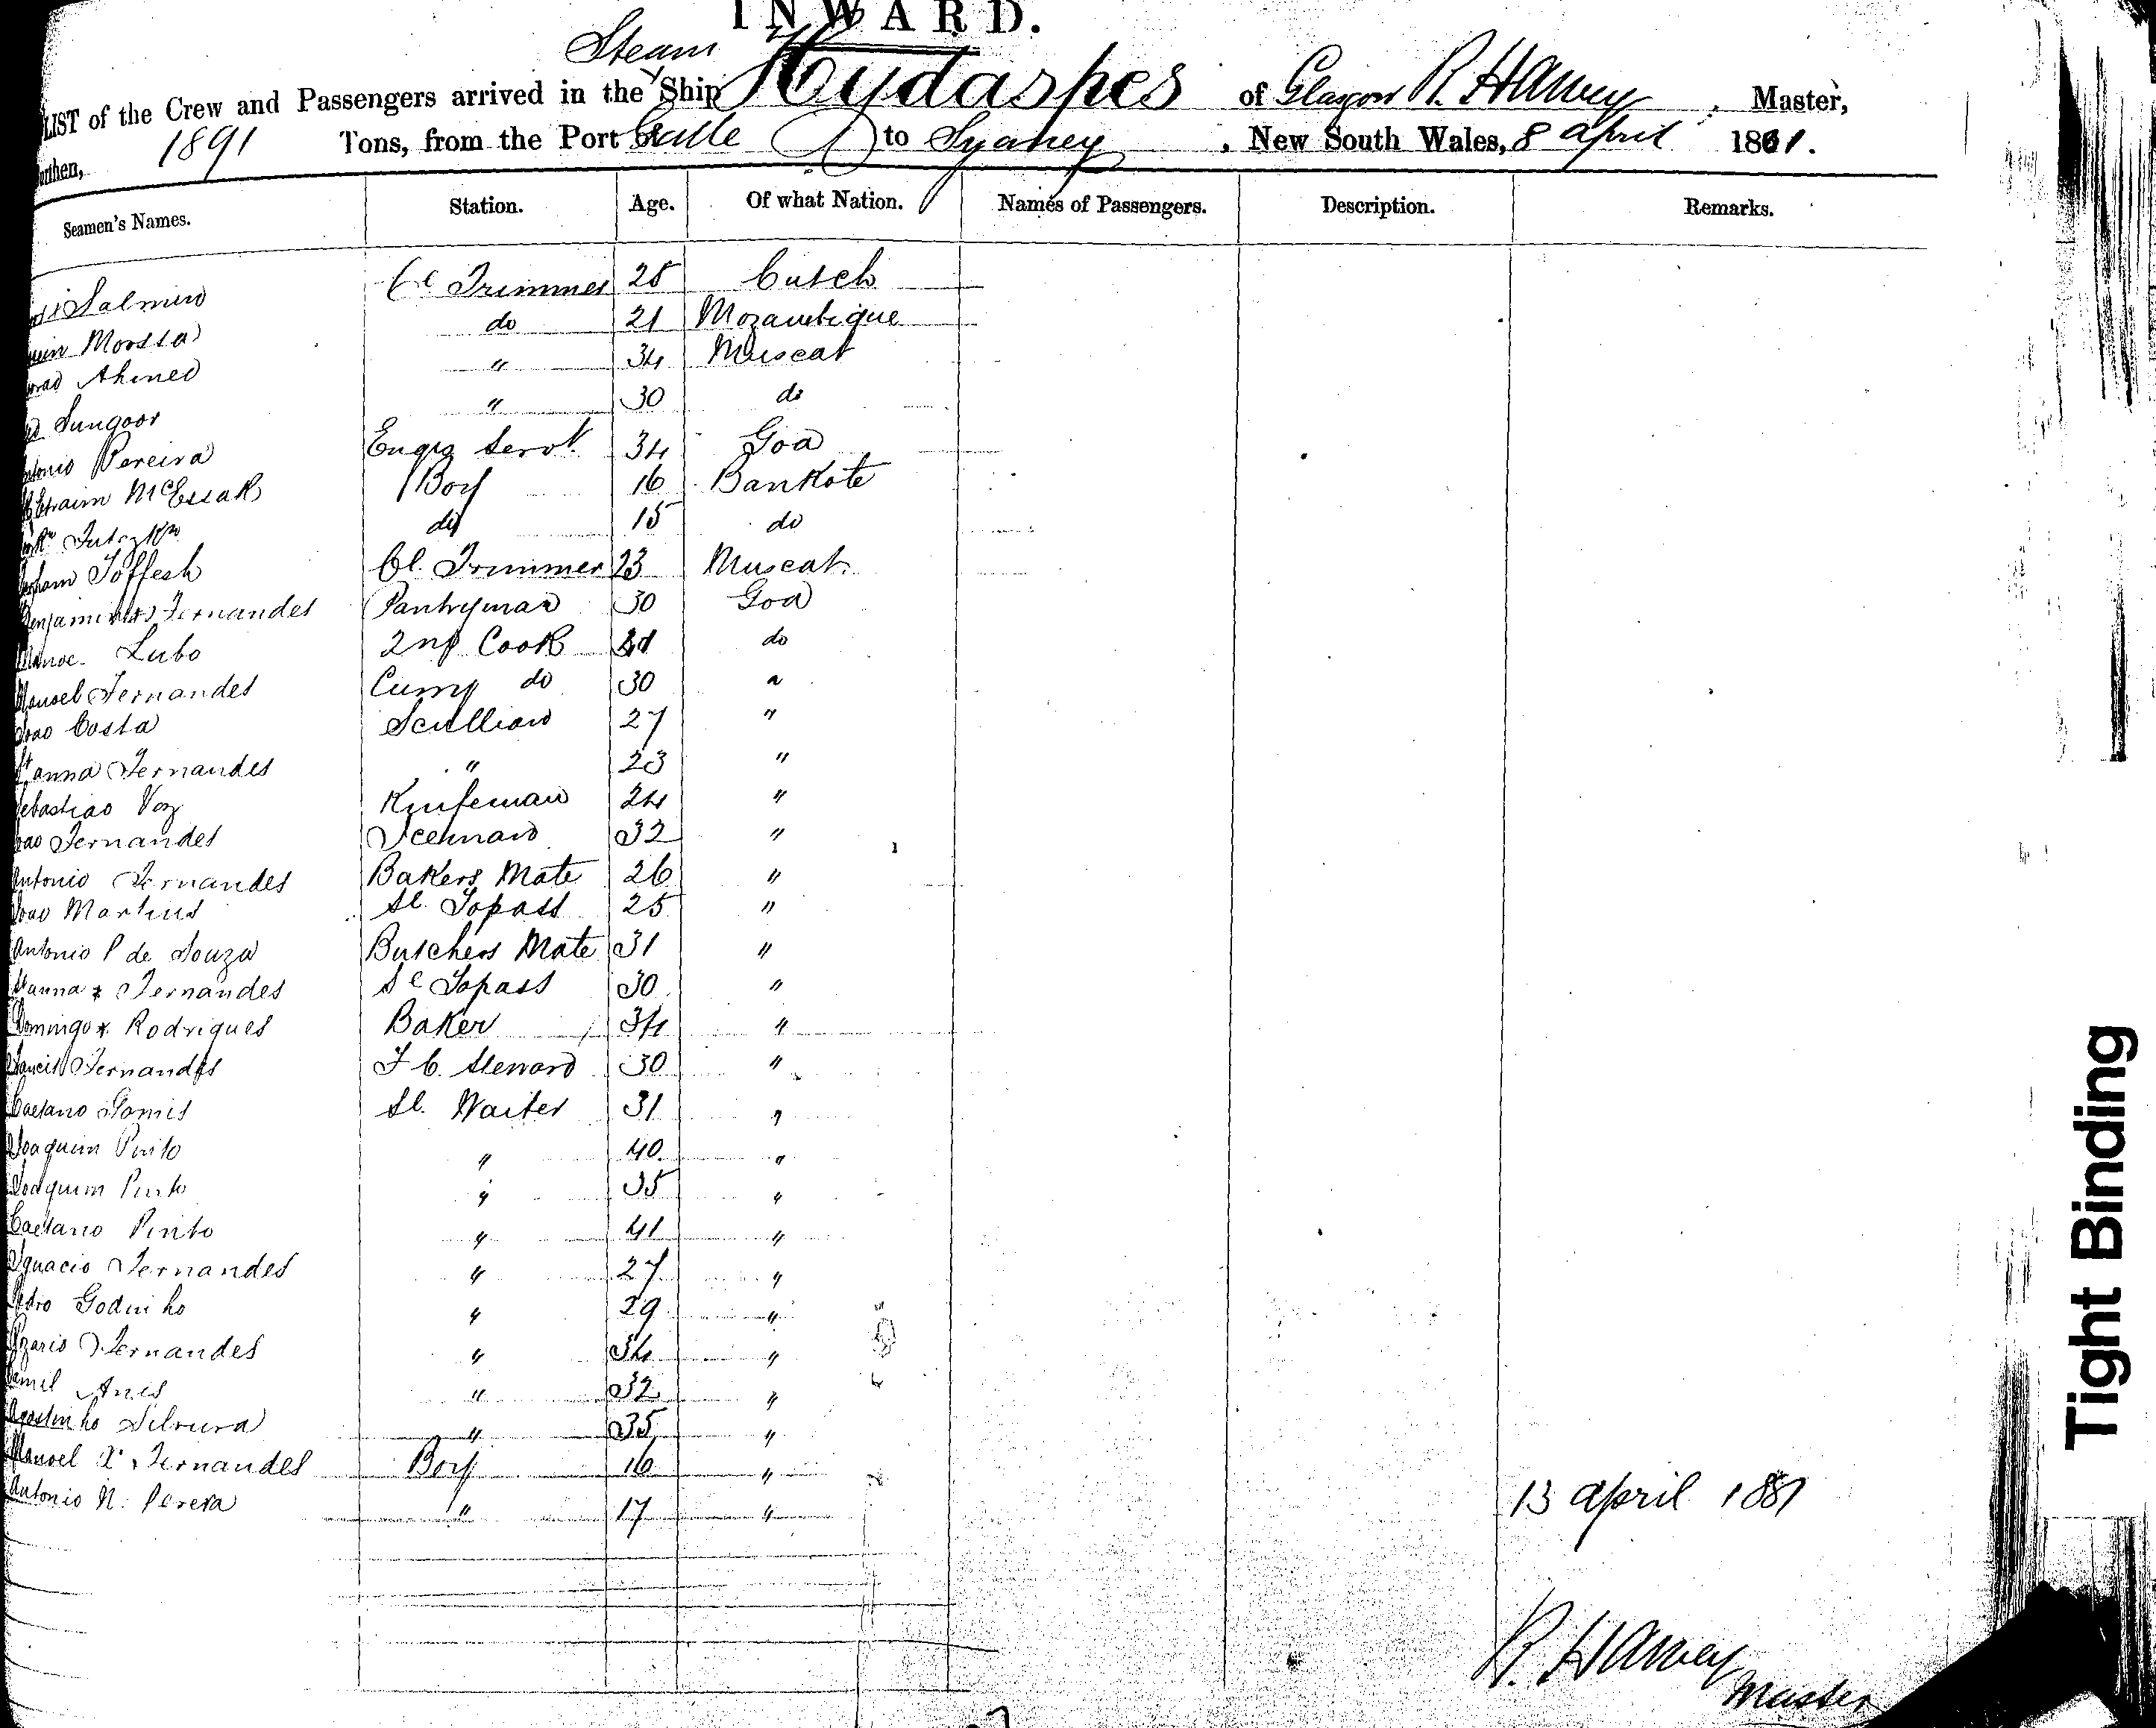 INWARD.
Steam
LIST of the Crew and Passengers arrived in the Ship Hydaspes of Glasgow R. Harvey, Master,
Burthen, 1891 Tons, from the Port of Galle to Sydney, New South Wales, 8 April 1881.
Seamen's Names. Station. Age. Of what Nation. Names of Passengers. Description. Remarks.
Salmin Cl Trimmer 25 Cutch
Moossa do 21 Mozambique
Ahmed " 34 Muscat
Sungoor " 30 do
Antonio Pereira Engrs Servt. 34 Goa
Ebraim Mc Essak Boy 16 Bankote
do 15 do
Toffesh Cl. Trimmer 23 Muscat
Benjamin Fernandes Pantryman 30 Goa
Lubo 2nd Cook do
Manoel Fernandes Curry do 30 "
Joao Costa Scullian 27 "
Stanna Fernandes " 23 "
Sebastiao Vaz Knifeman 24 "
Joao Fernandes 32 "
Antonio Fernandes Bakers Mate 26 "
Joao Martins Sl. Topass 25 "
Antonio P de Souza Butchers Mate 31 "
Stanna Fernandes Sl Topass 30 "
Domingo Rodrigues Baker 34 "
Francis Fernandes F C. Steward 30 "
Caetano Gomis Sl. Waiter 31 "
Joaquim Pinto " 40 "
Joaquim Pinto " 35 "
Caetano Pinto " 41 "
Ignacio Fernandes " 27 "
Pedro Godinho " 29 "
Fernandes " 34 "
Anis " 32 "
Agostinho Silvura " 35 "
Manoel X. Fernandes Boy 16 "
Antonio N. Perera " 17 "
13 April 1881
R. Harvey
Master
Tight Binding